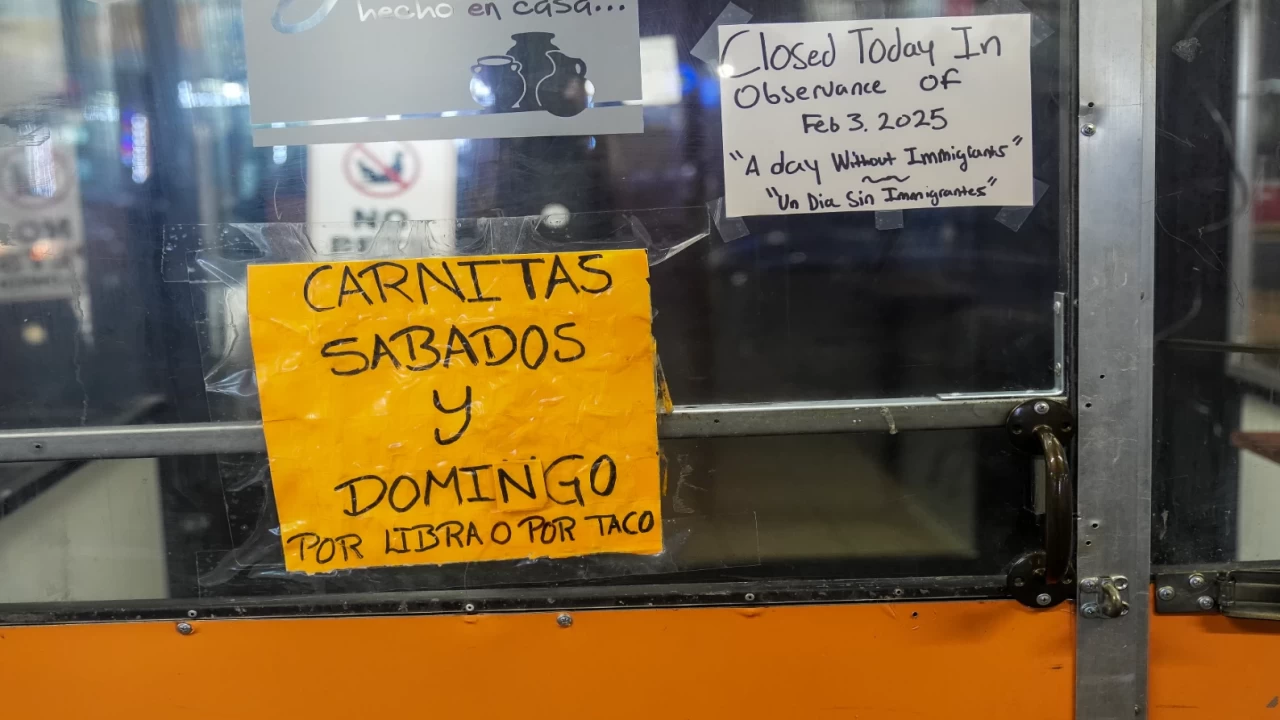 hecho en casa...
Closed Today In
Observance of
Feb 3. 2025
"A day Without Immigrants"
"Un Dia Sin Immigrantes"
NO
CARNITAS
SABADOS
Y
DOMINGO
POR LIBRA O POR TACO